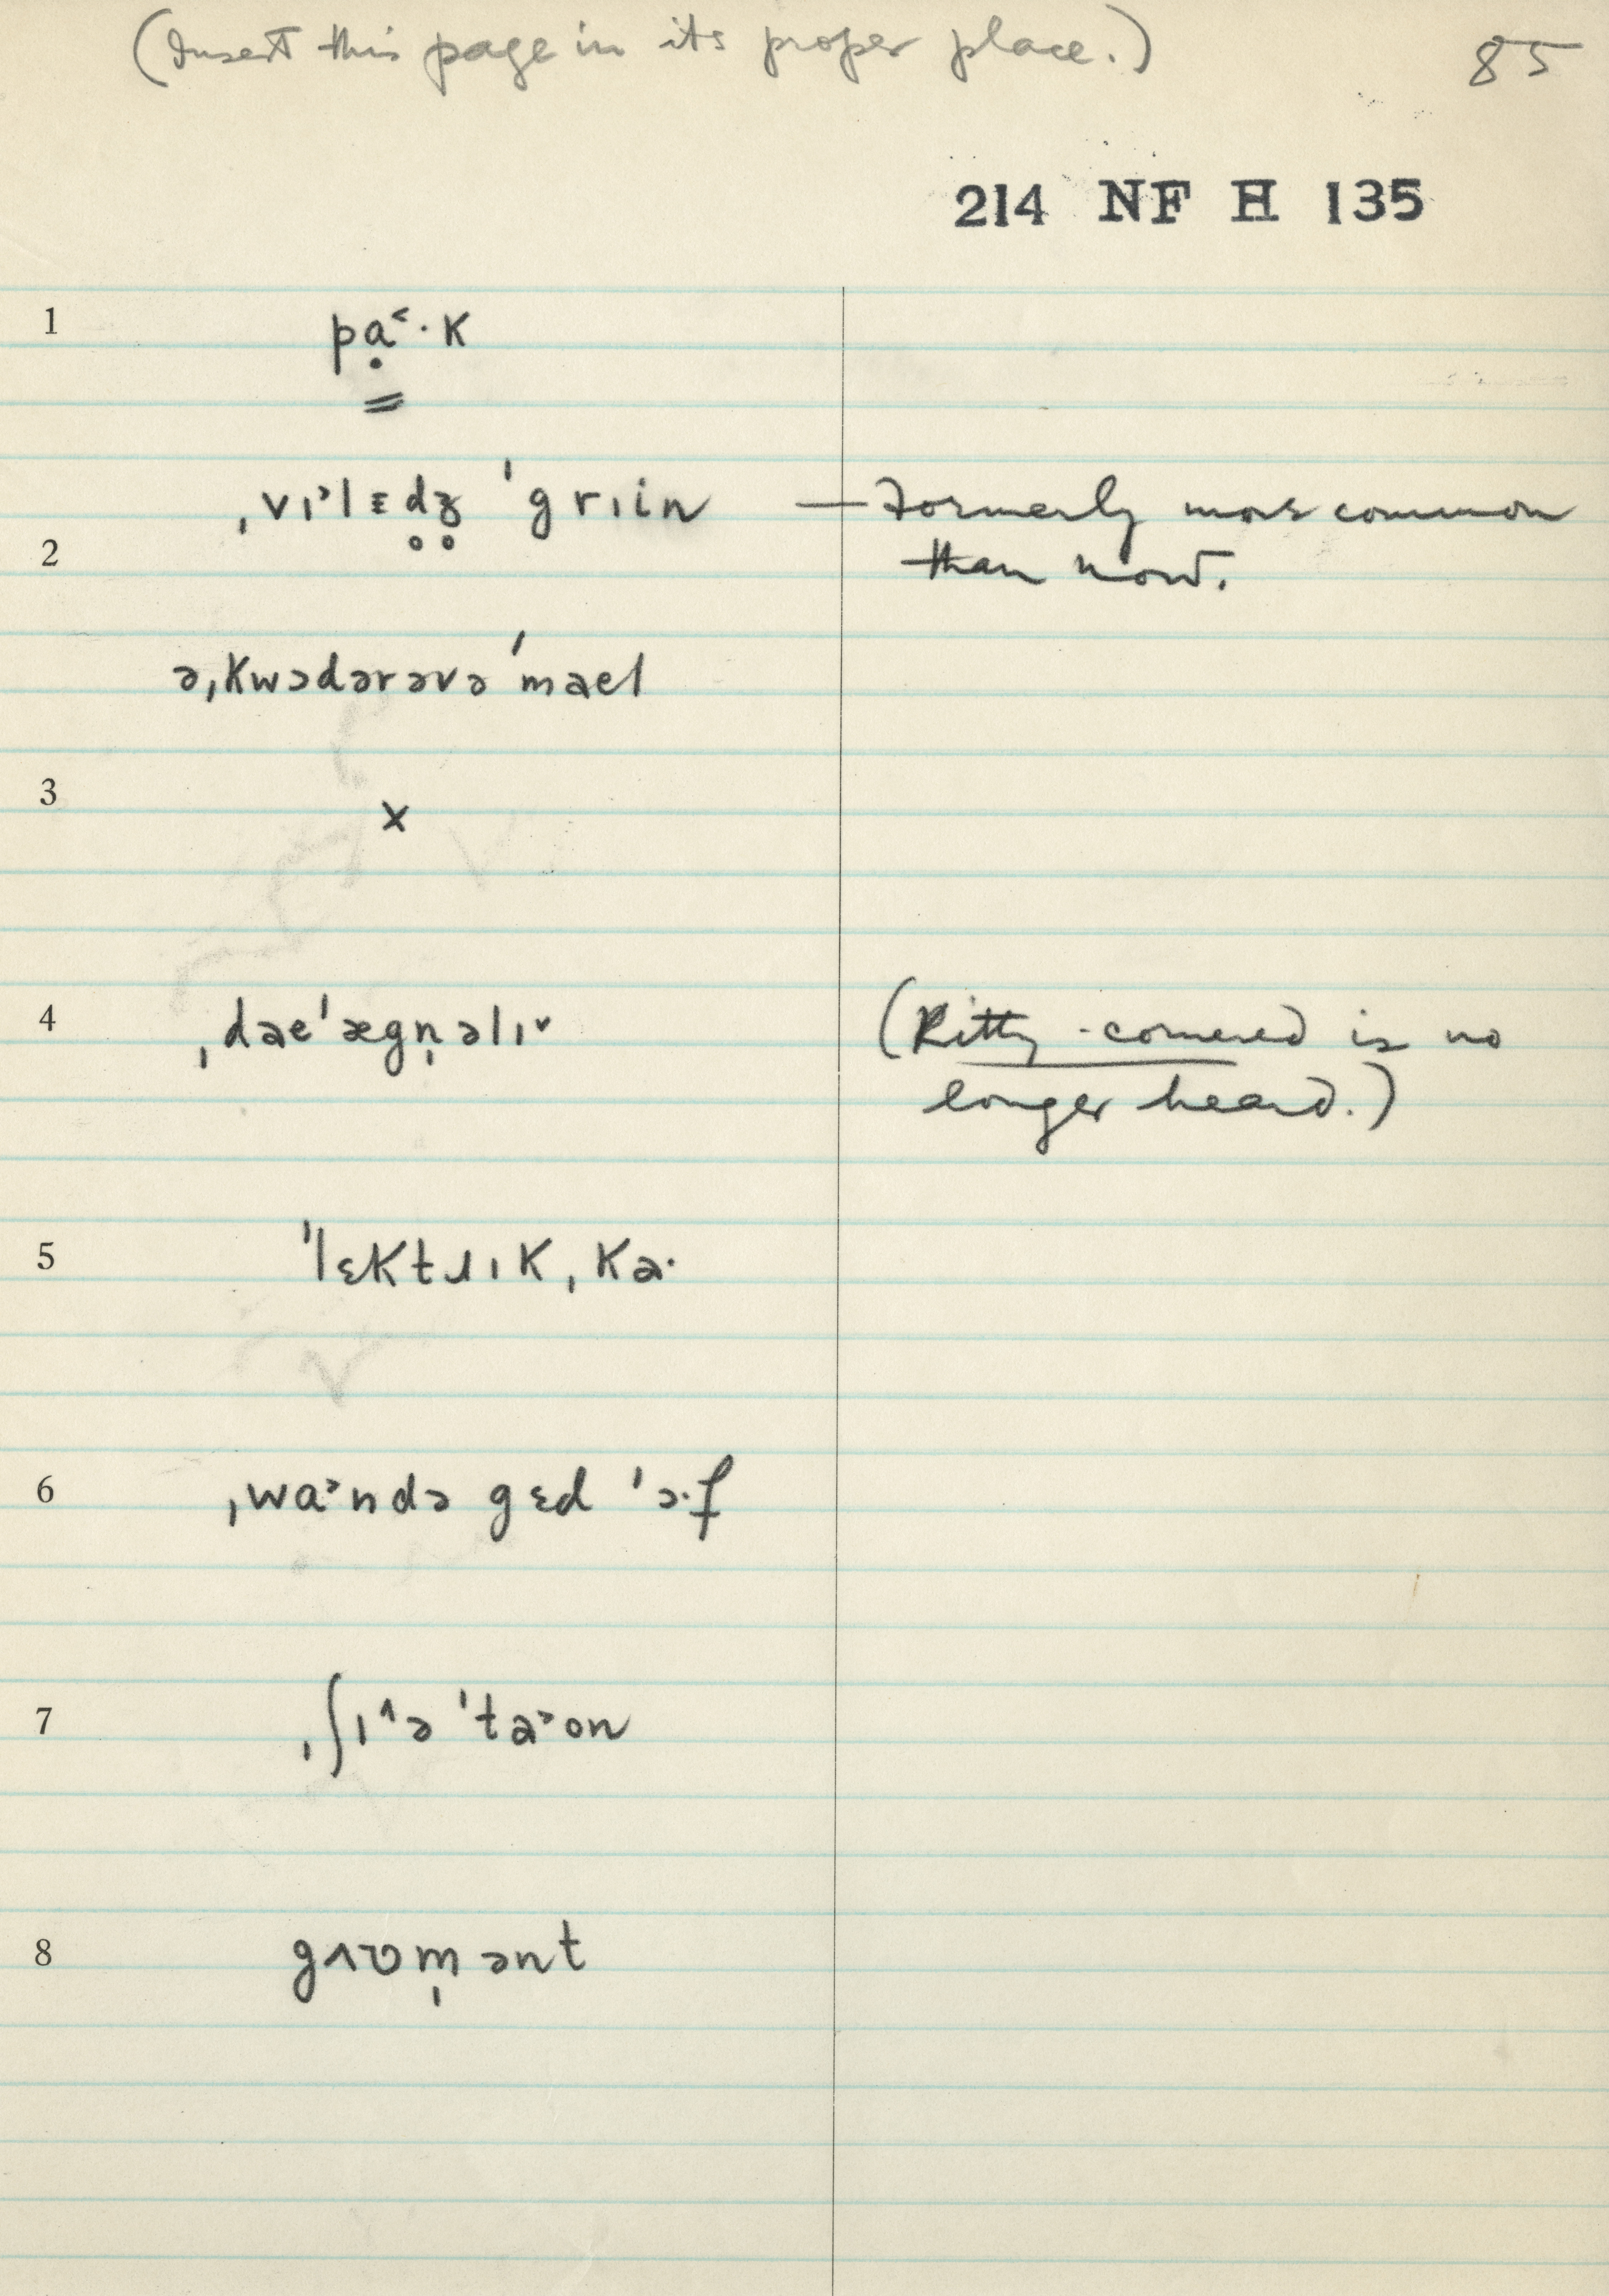 (Insert this page in its proper place.) 85
214 NF H 135
1 pɑ̣˂·k
2 ˌvɪ˃lɛd̥ʒ̊ ˈgrɪin — Formerly more common
than now.
əˌkwɔdərəvəˈmael
3 x
4 ˌdaeˈægn̩əlɪ˅ (Kitty-cornered is no
longer heard.)
5 ˈlɛktɹɪkˌka·
6 ˌwɑ˃ndə gɛd ˈɔ·f
7 ˌʃɪ˄ə ˈta˃on
8 gʌʊm̩ənt